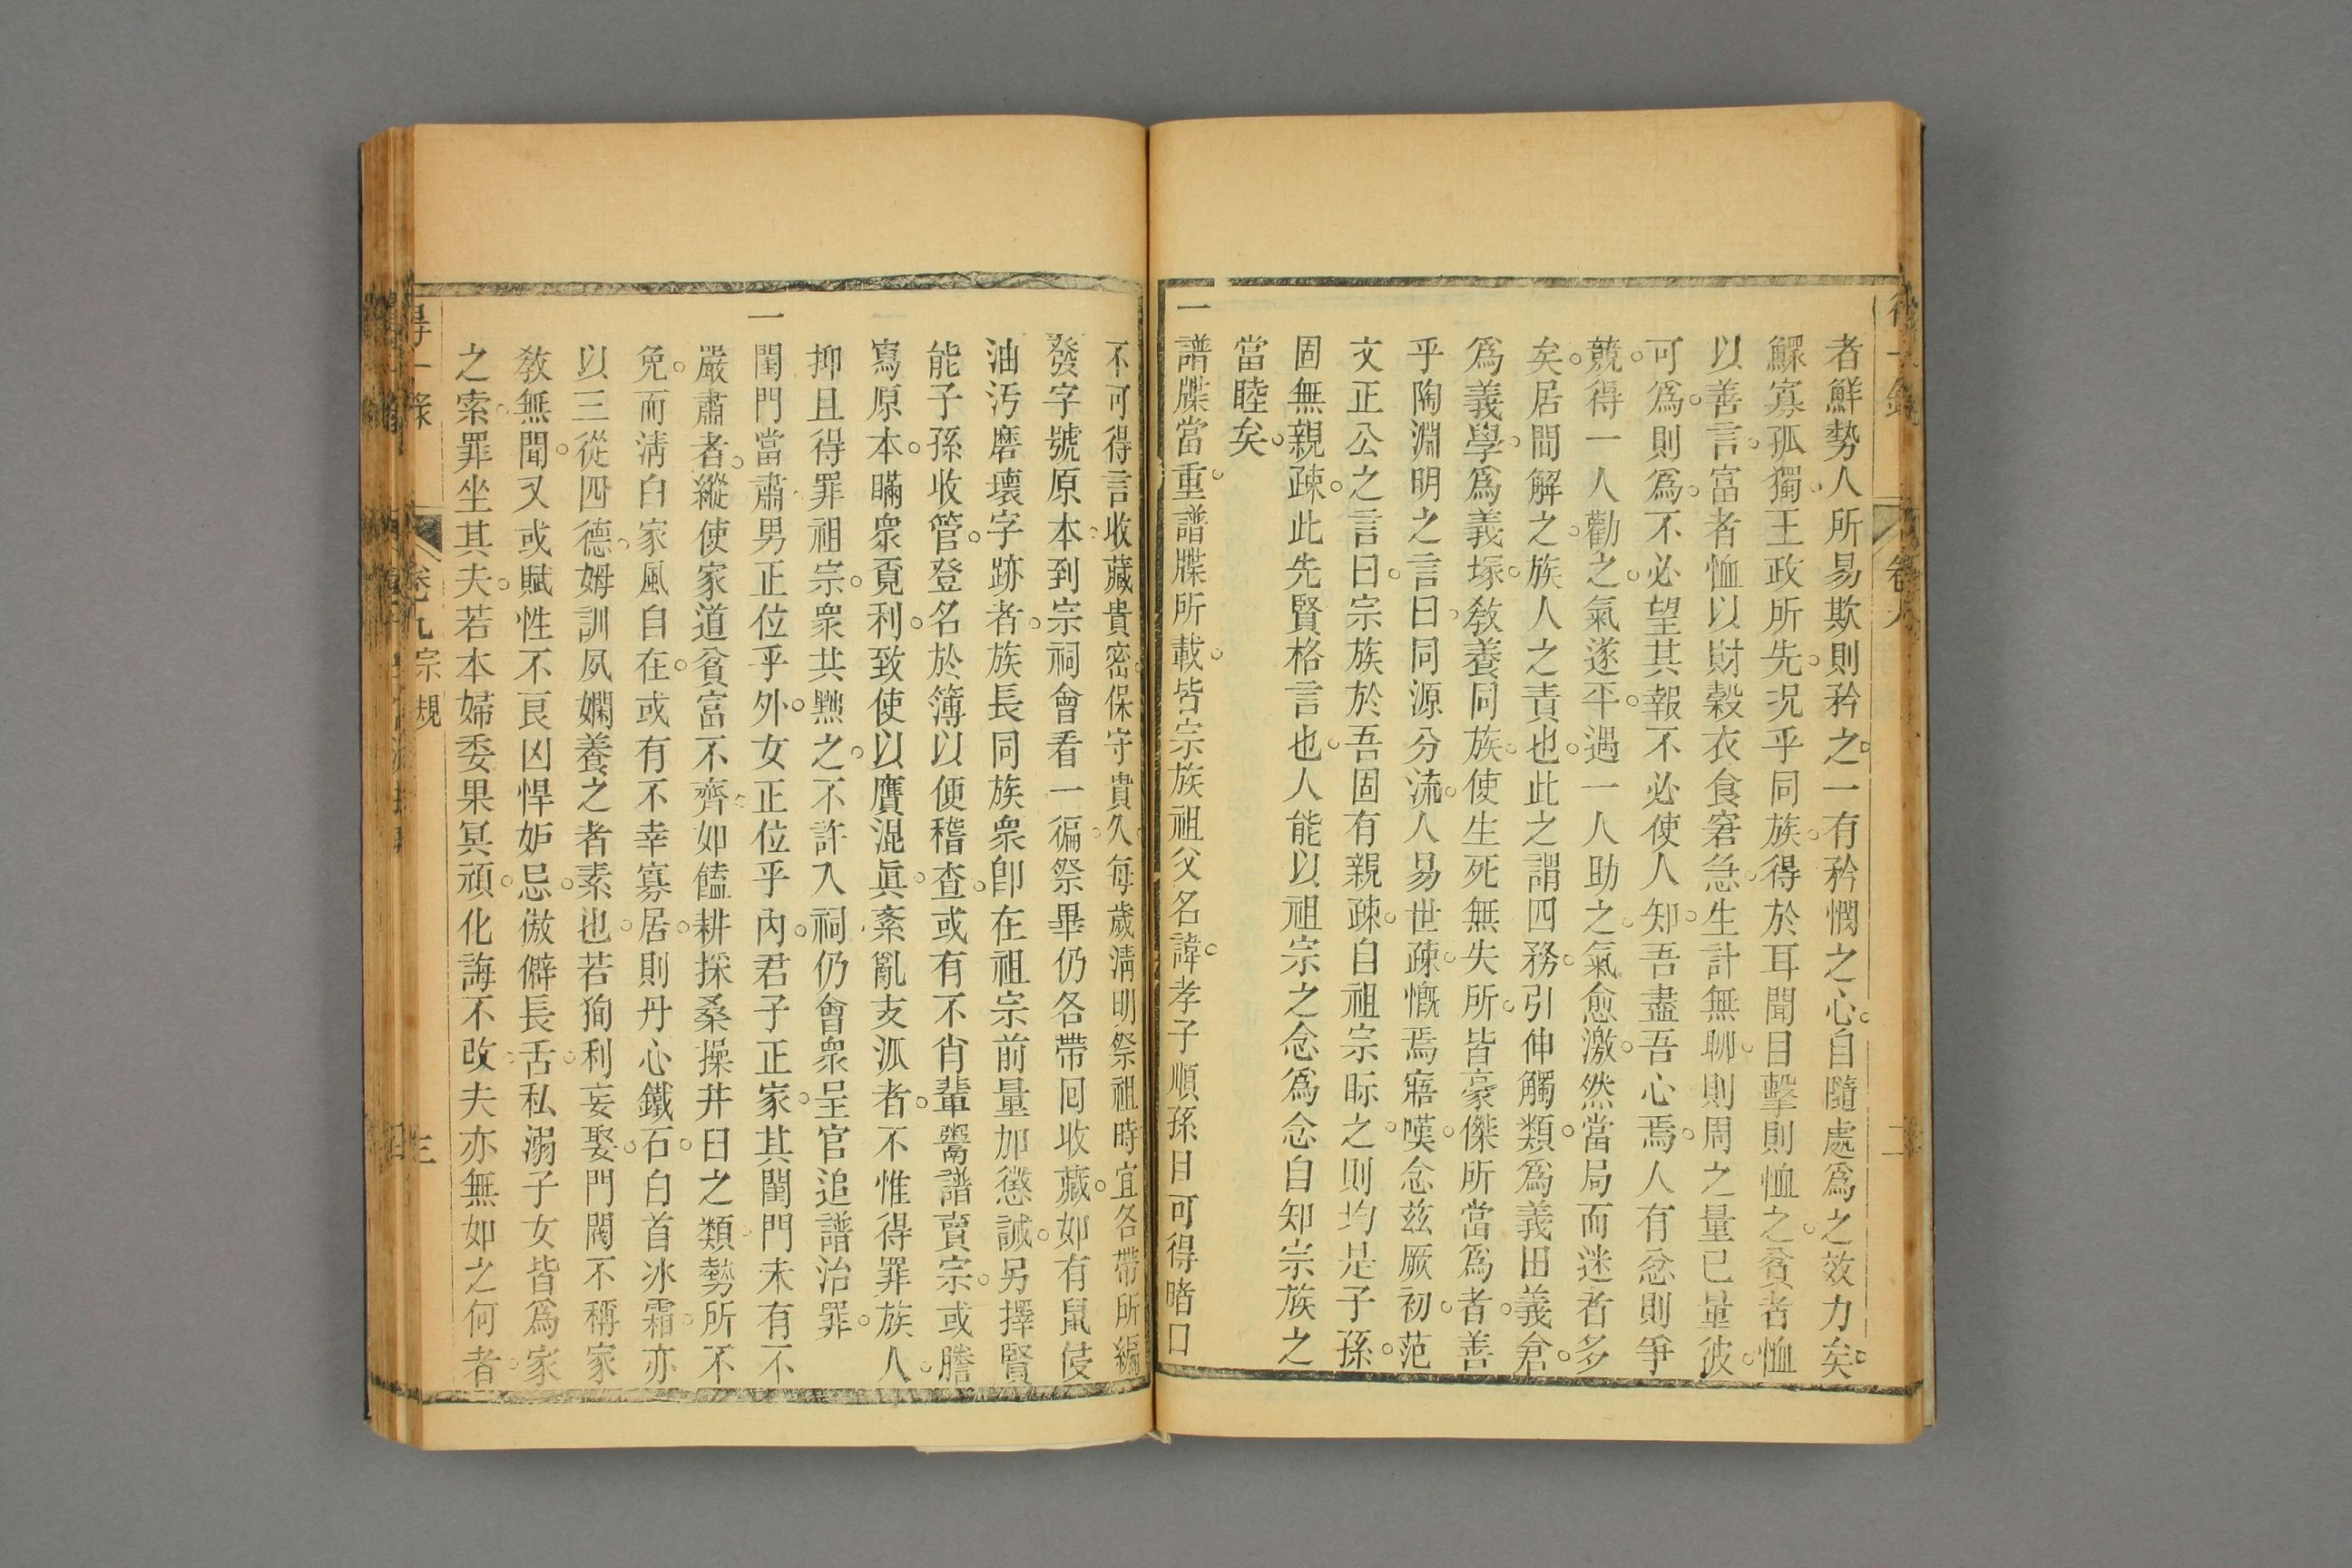 者鮮勢人所易欺則矜之一有矜憫之心自隨處爲之效力矣
鰥寡孤獨王政所先况乎同族得於耳聞目擊則恤之貧者恤
以善言富者恤以財穀衣食窘急生計無聊則周之量已量彼
可爲則爲不必望其報不必使人知吾盡吾心焉人有忿則爭
競得一人勸之氣遂平遇一人助之氣愈激然當局而迷者多
矣居間解之族人之責也此之謂四務引伸觸類爲義田義倉
爲義學爲義塚敎養同族使生死無失所皆豪傑所當爲者善
乎陶淵明之言曰同源分流人易世疎慨焉寤嘆念茲厥初范
文正公之言曰宗族於吾固有親疎自祖宗眎之則均是子孫
固無親疎此先賢格言也人能以祖宗之念爲念自知宗族之
當睦矣
一譜牒當重譜牒所載皆宗族祖父名諱孝子順孫目可得睹口
不可得言收藏貴密保守貴久每歲淸明祭祖時宜各帶所編
發字號原本到宗祠會看一徧祭畢仍各帶回收藏如有鼠侵
油汚磨壞字跡者族長同族衆卽在祖宗前量加懲誡另擇賢
能子孫收管登名於簿以便稽查或有不肖輩鬻譜賣宗或謄
寫原本瞞衆覔利致使以贋混眞紊亂支派者不惟得罪族人
抑且得罪祖宗衆共黜之不許入祠仍會衆呈官追譜治罪
一閨門當肅男正位乎外女正位乎內君子正家其閨門未有不
嚴肅者縱使家道貧富不齊如饁耕採桑操井臼之類勢所不
免而淸白家風自在或有不幸寡居則丹心鐵石白首冰霜亦
以三從四德姆訓夙嫻養之者素也若狥利妄娶門閥不稱家
敎無聞又或賦性不良凶悍妒忌傲僻長舌私溺子女皆爲家
之索罪坐其夫若本婦委果冥頑化誨不改夫亦無如之何者
得一錄
卷九宗規
三